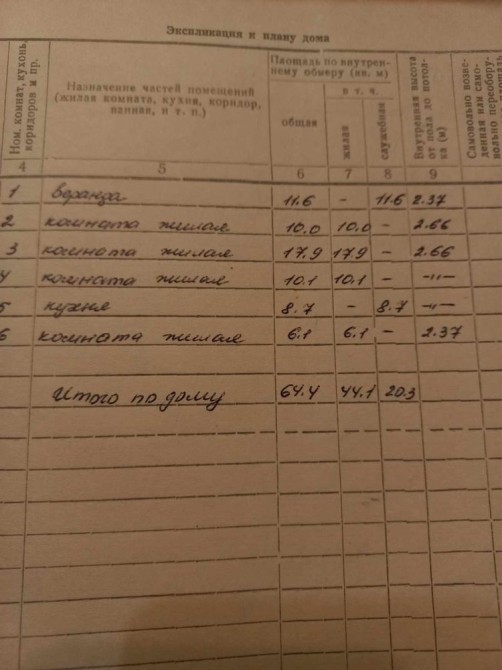 Экспликация к плану дома
Ном. комнат, кухонь, коридоров и пр.
Назначение частей помещений (жилая комната, кухня, коридор, ванная, и т. п.)
Площадь по внутреннему обмеру (кв. м)
общая
в т. ч.
жилая
служебная
Внутренняя высота от пола до потолка (м)
Самовольно возведенная или самовольно переобору
4 5 6 7 8 9
1 веранда 11.6 - 11.6 2.37
2 комната жилая 10.0 10.0 - 2.66
3 комната жилая 17.9 17.9 - 2.66
4 комната жилая 10.1 10.1 - -"-
5 кухня 8.7 - 8.7 -"-
6 комната жилая 6.1 6.1 - 2.37
Итого по дому 64.4 44.1 20.3